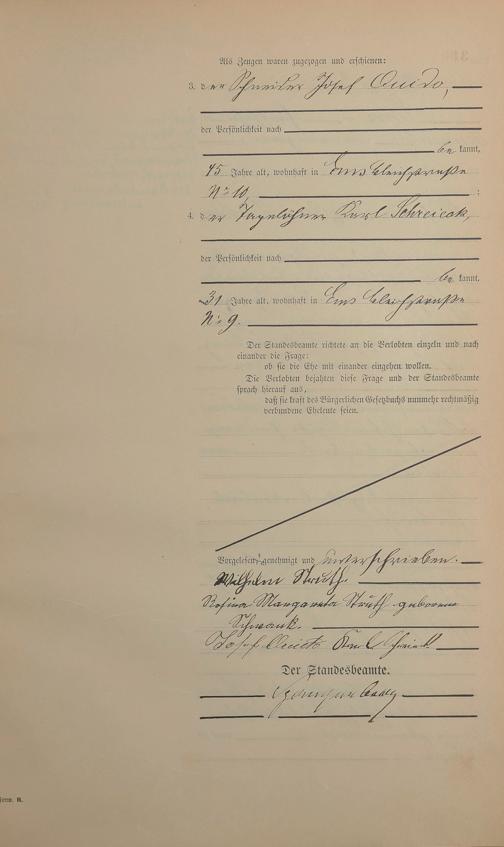 Als Zeugen waren zugezogen und erschienen:
3. der Schneider Josef Quido,
der Persönlichkeit nach
be kannt,
45 Jahre alt, wohnhaft in Ems Bleichstraße
No 10, ;
4. der Tagelöhner Karl Schreieck,
der Persönlichkeit nach
be kannt,
31 Jahre alt, wohnhaft in Ems Bleichstraße
No 9.
Der Standesbeamte richtete an die Verlobten einzeln und nach
einander die Frage:
ob sie die Ehe mit einander eingehen wollen.
Die Verlobten bejahten diese Frage und der Standesbeamte
sprach hierauf aus,
daß sie kraft des Bürgerlichen Gesetzbuchs nunmehr rechtmäßig
verbundene Eheleute seien.
Vorgelesen, genehmigt und unterschrieben.
Wilhelm Struth.
Rosina Margareta Struth geborene
Schwank.
Josef Quido Karl
Der Standesbeamte.